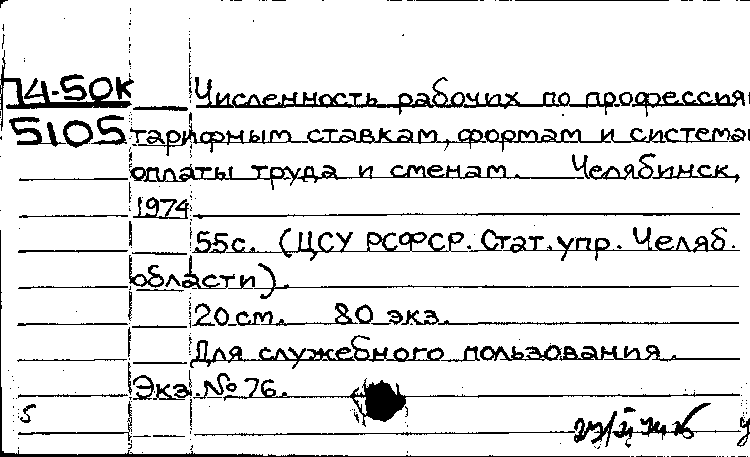 74-50к Численность рабочих по профессия
5105 тарифным ставкам, формам и система
оплаты труда и сменам. Челябинск,
1974.
55с. (ЦСУ РСФСР. Стат. упр. Челяб.
области).
20 см. 80 экз.
Для служебного пользования.
Экз. № 76.
5